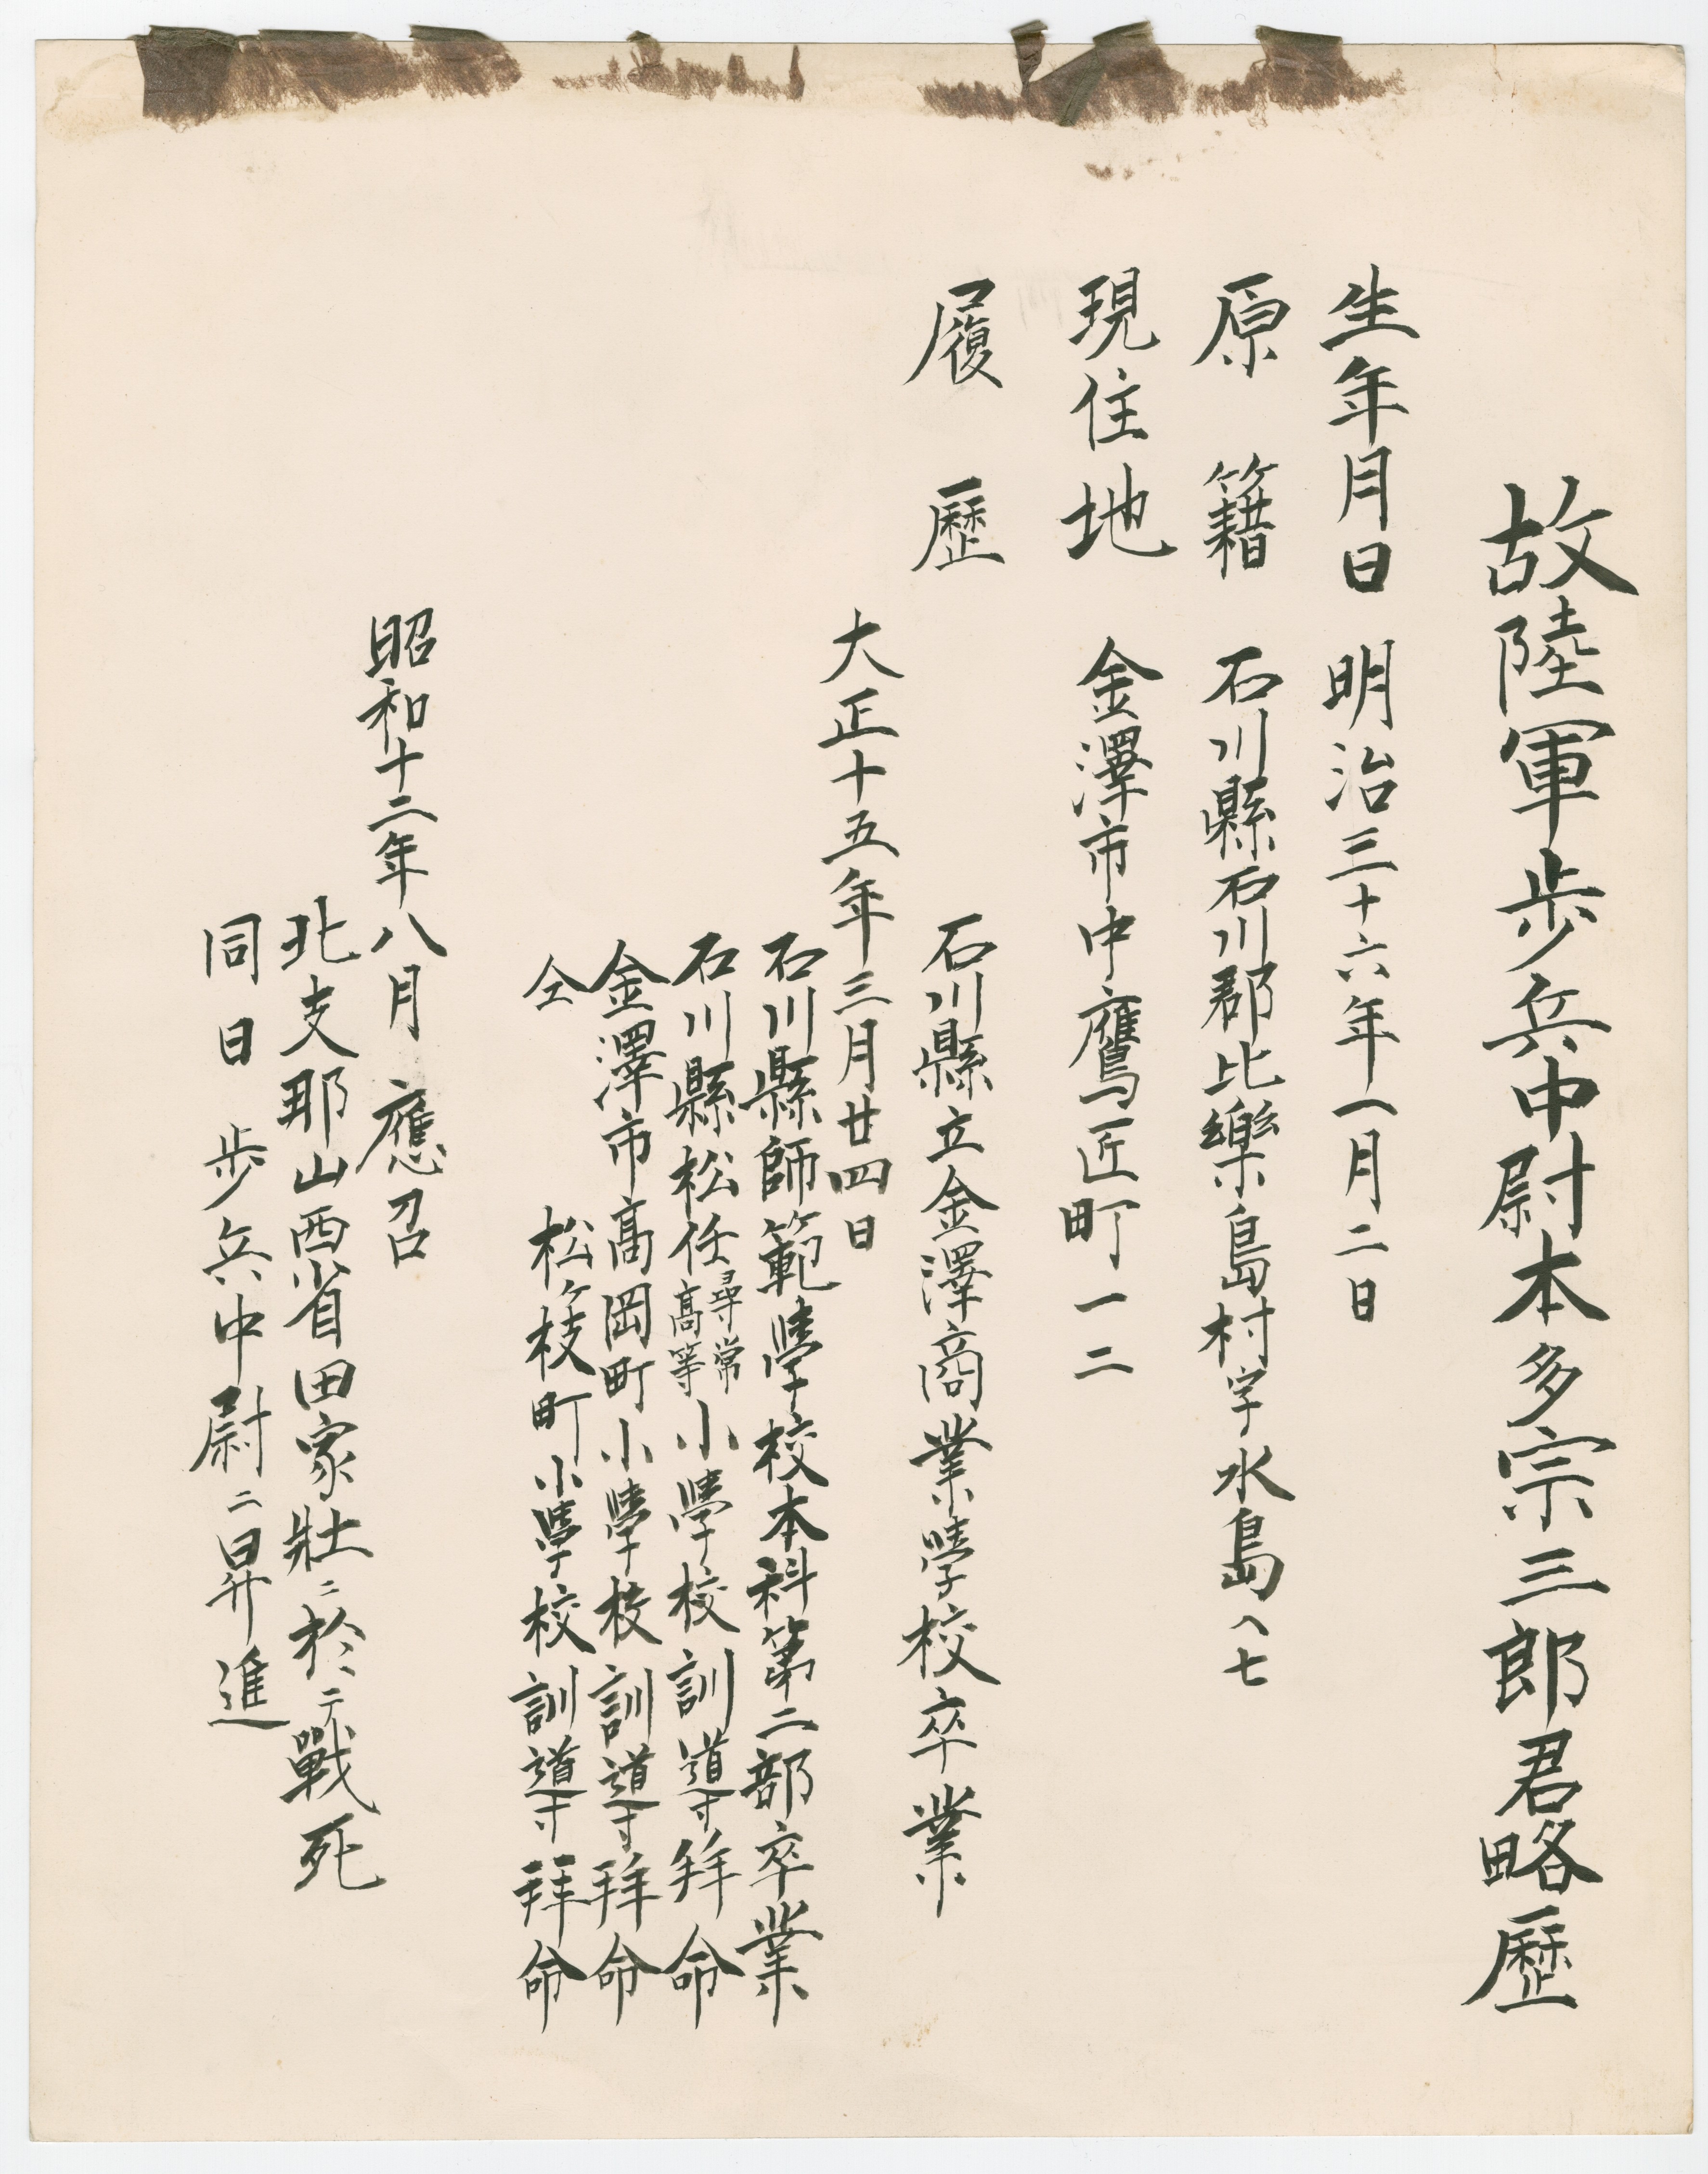 故陸軍歩兵中尉本多宗三郎君略歴
生年月日 明治三十六年一月二日
原籍 石川縣石川郡比樂島村字水島八七
現住地 金澤市中鷹匠町一二
履歴
石川縣立金澤商業學校卒業
大正十五年三月廿四日
石川縣師範學校本科第二部卒業
石川縣松任尋常高等小學校訓導拜命
金澤市高岡町小學校訓導拜命
仝 松ヶ枝町小學校訓導拜命
昭和十二年八月 應召
北支耶山西省田家壯ニ於テ戰死
同日 歩兵中尉ニ昇進